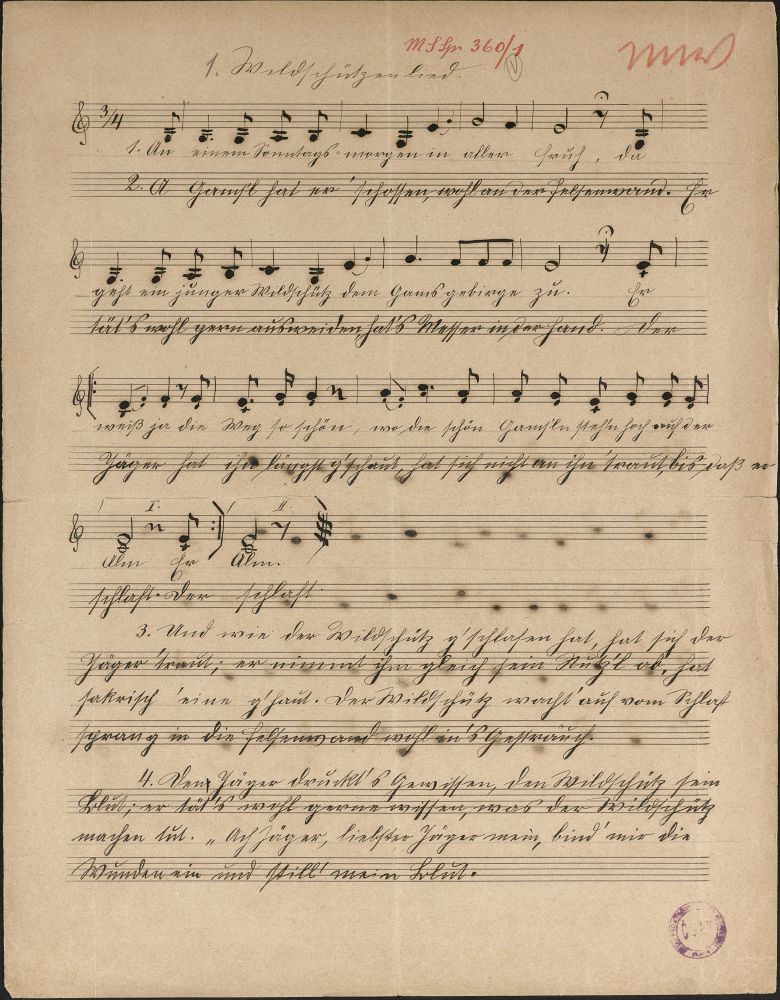 MS Spr 360/1
1. Wildschützenlied.
3/4
1. An einem Sonntags-morgen in aller fruh, da
2. A Gamsl hat er 'schossen, wohl an der Felsenwand. Er
geht ein junger Wildschütz dem Gamsgebirge zu. Er
tät's wohl gern ausweiden, hat's Messer in der Hand. Der
weiß ja die Weg so schön, wo die schön Gamsln stehn hoch auf der
Jäger hat ihn längst g'schaut, hat sich nicht an ihn 'traut, bis daß er
I. II.
Alm Er Alm.
schlaft. Der schlaft.
3. Und wie der Wildschütz g'schlafen hat, hat sich der
Jäger 'traut; er nimmt ihm gleich sein Stutz'l ab, hat
sakrisch 'eine g'haut. Der Wildschütz wacht' auf vom Schlaf
sprang in die Felsenwand wohl in's Gesträuch.
4. Dem Jäger druckt's Gewissen, den Wildschütz sein
Blut; er tät's wohl gerne wissen, was der Wildschütz
machen tut. „Ach Jäger, liebster Jäger mein, bind' mir die
Wunden ein und still' mein Blut.